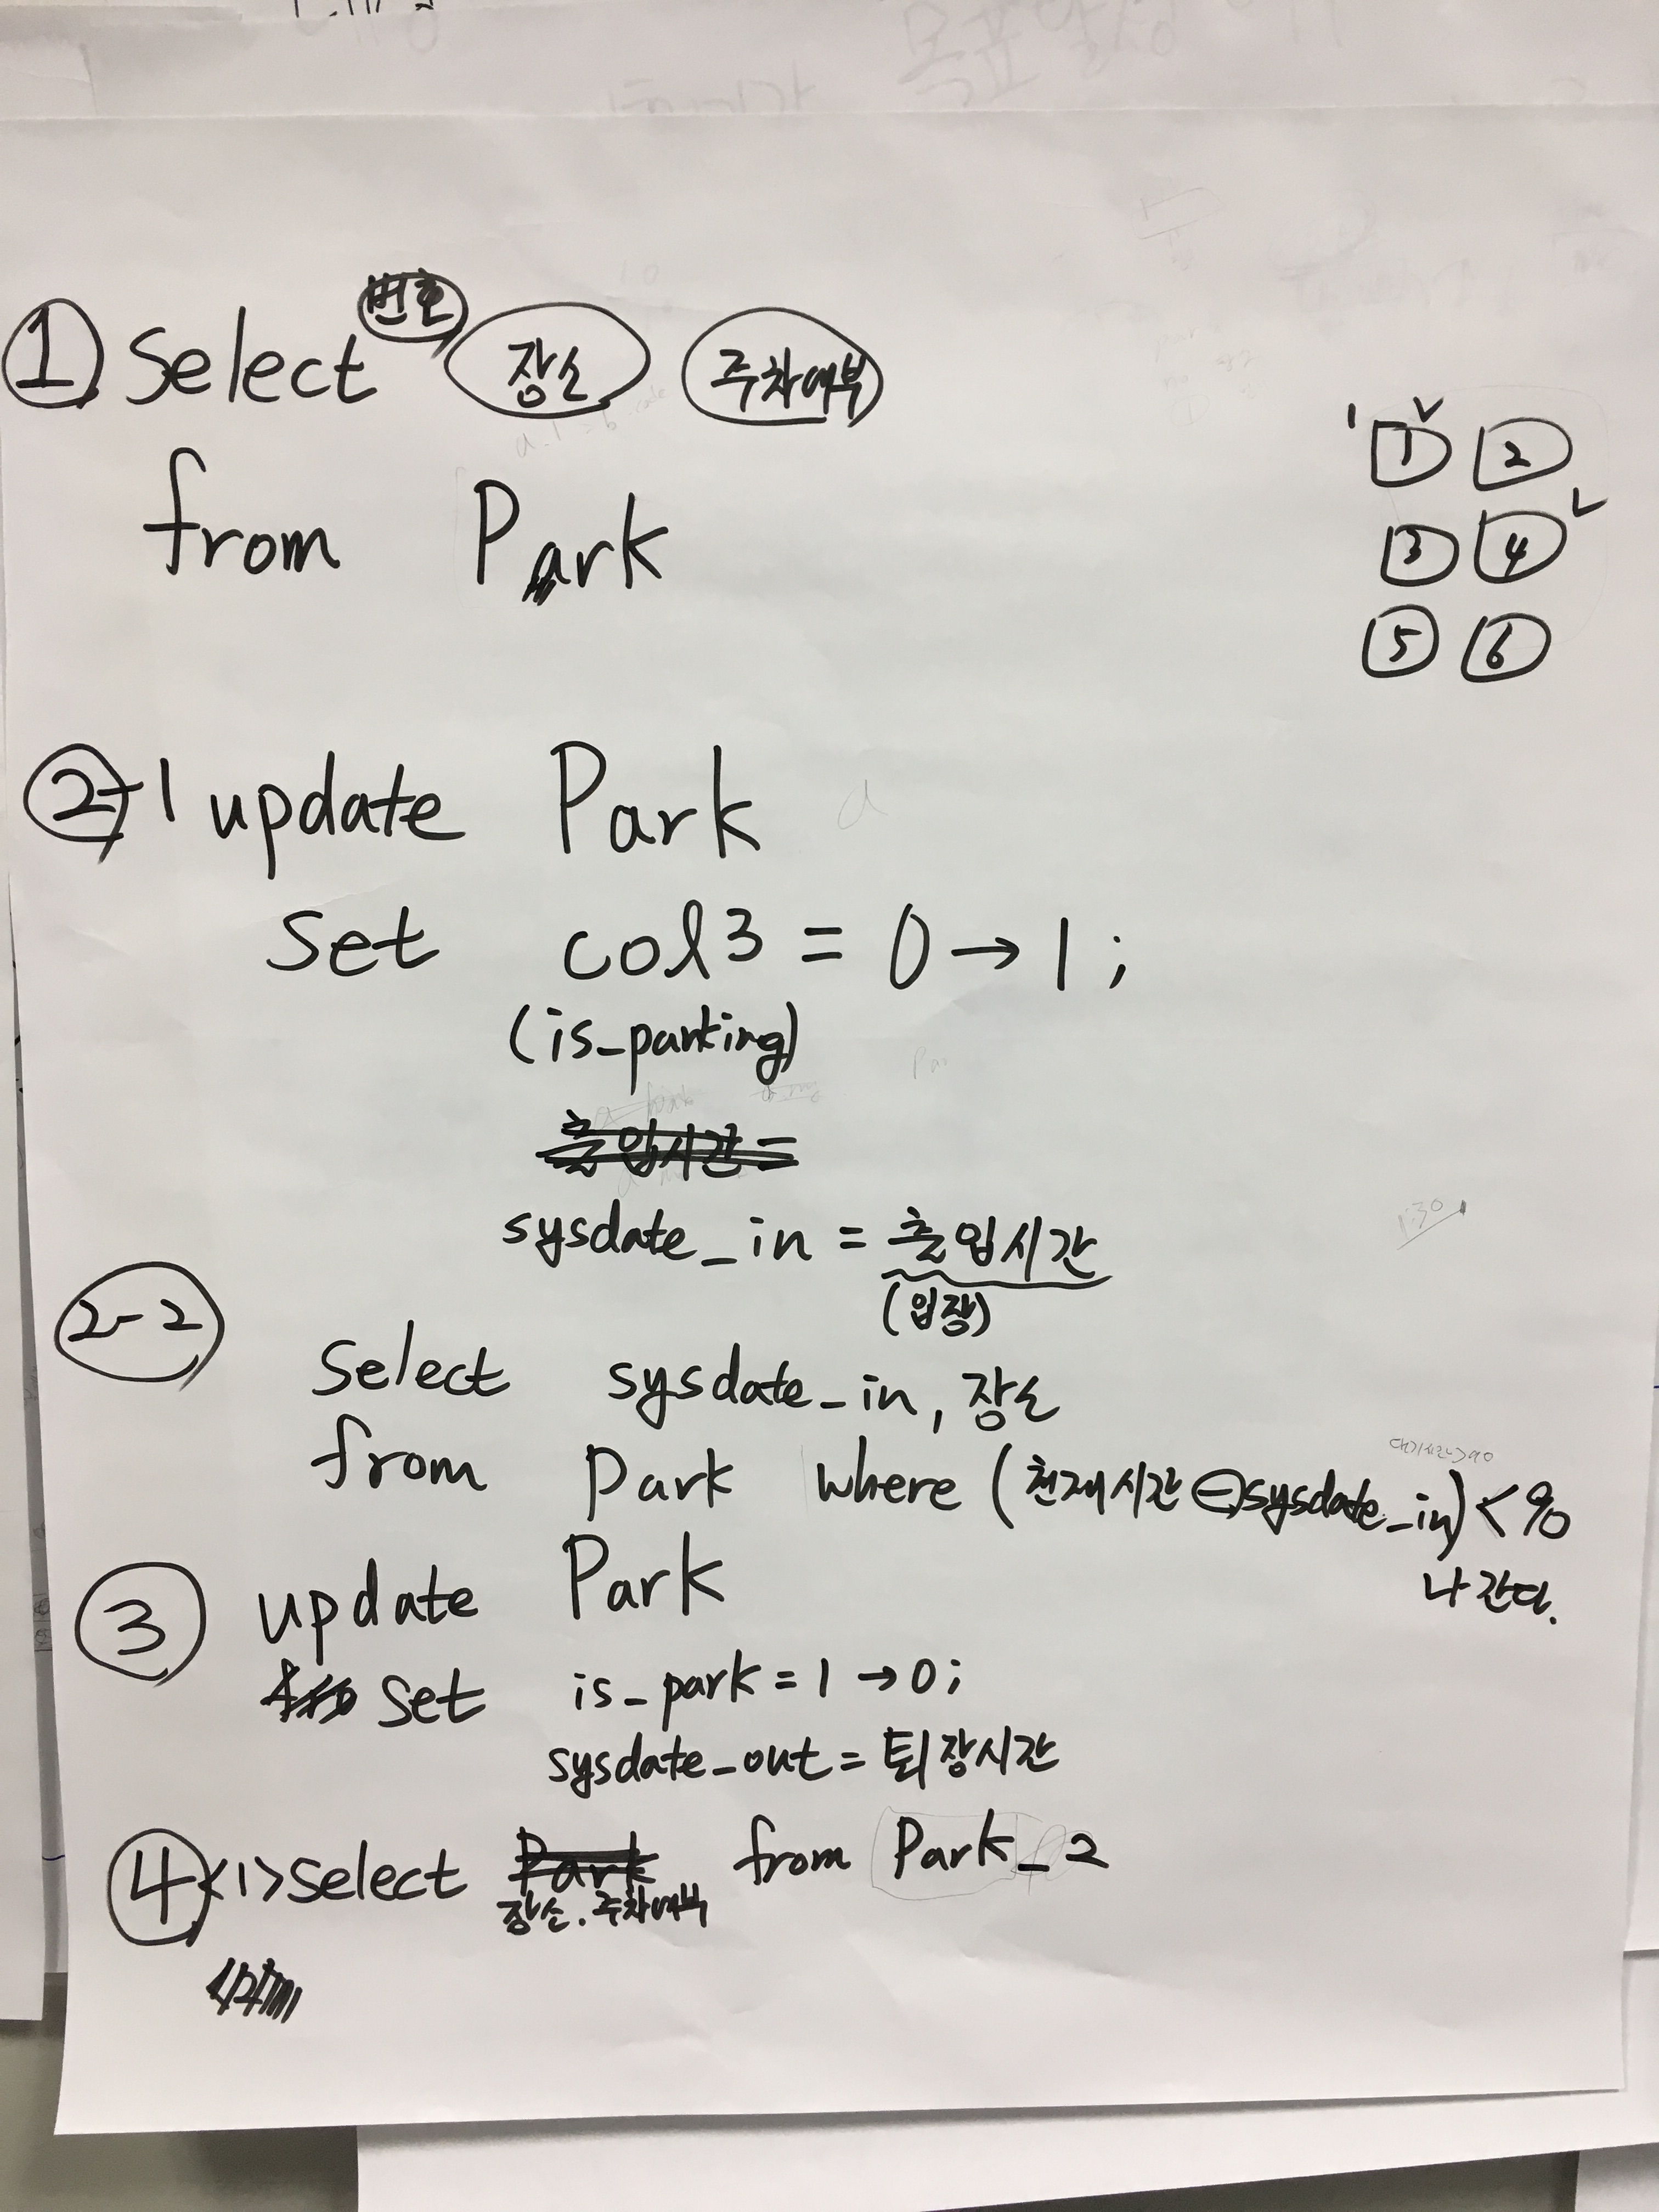 ① Select 번호 장소 주차여부
from Park
1 2
3 4
5 6
2-1 update Park
Set col3 = 0→1;
(is_parking)
출입시간=
sysdate_in = 출입시간
(입장)
2-2
Select sysdate_in, 장소
from Park where (현재시간 ⊖ sysdate_in) < 90
나간다.
③ update Park
Set is_park = 1→0;
sysdate_out = 퇴장시간
④ <1> Select Park from Park_2
장소. 주차여부